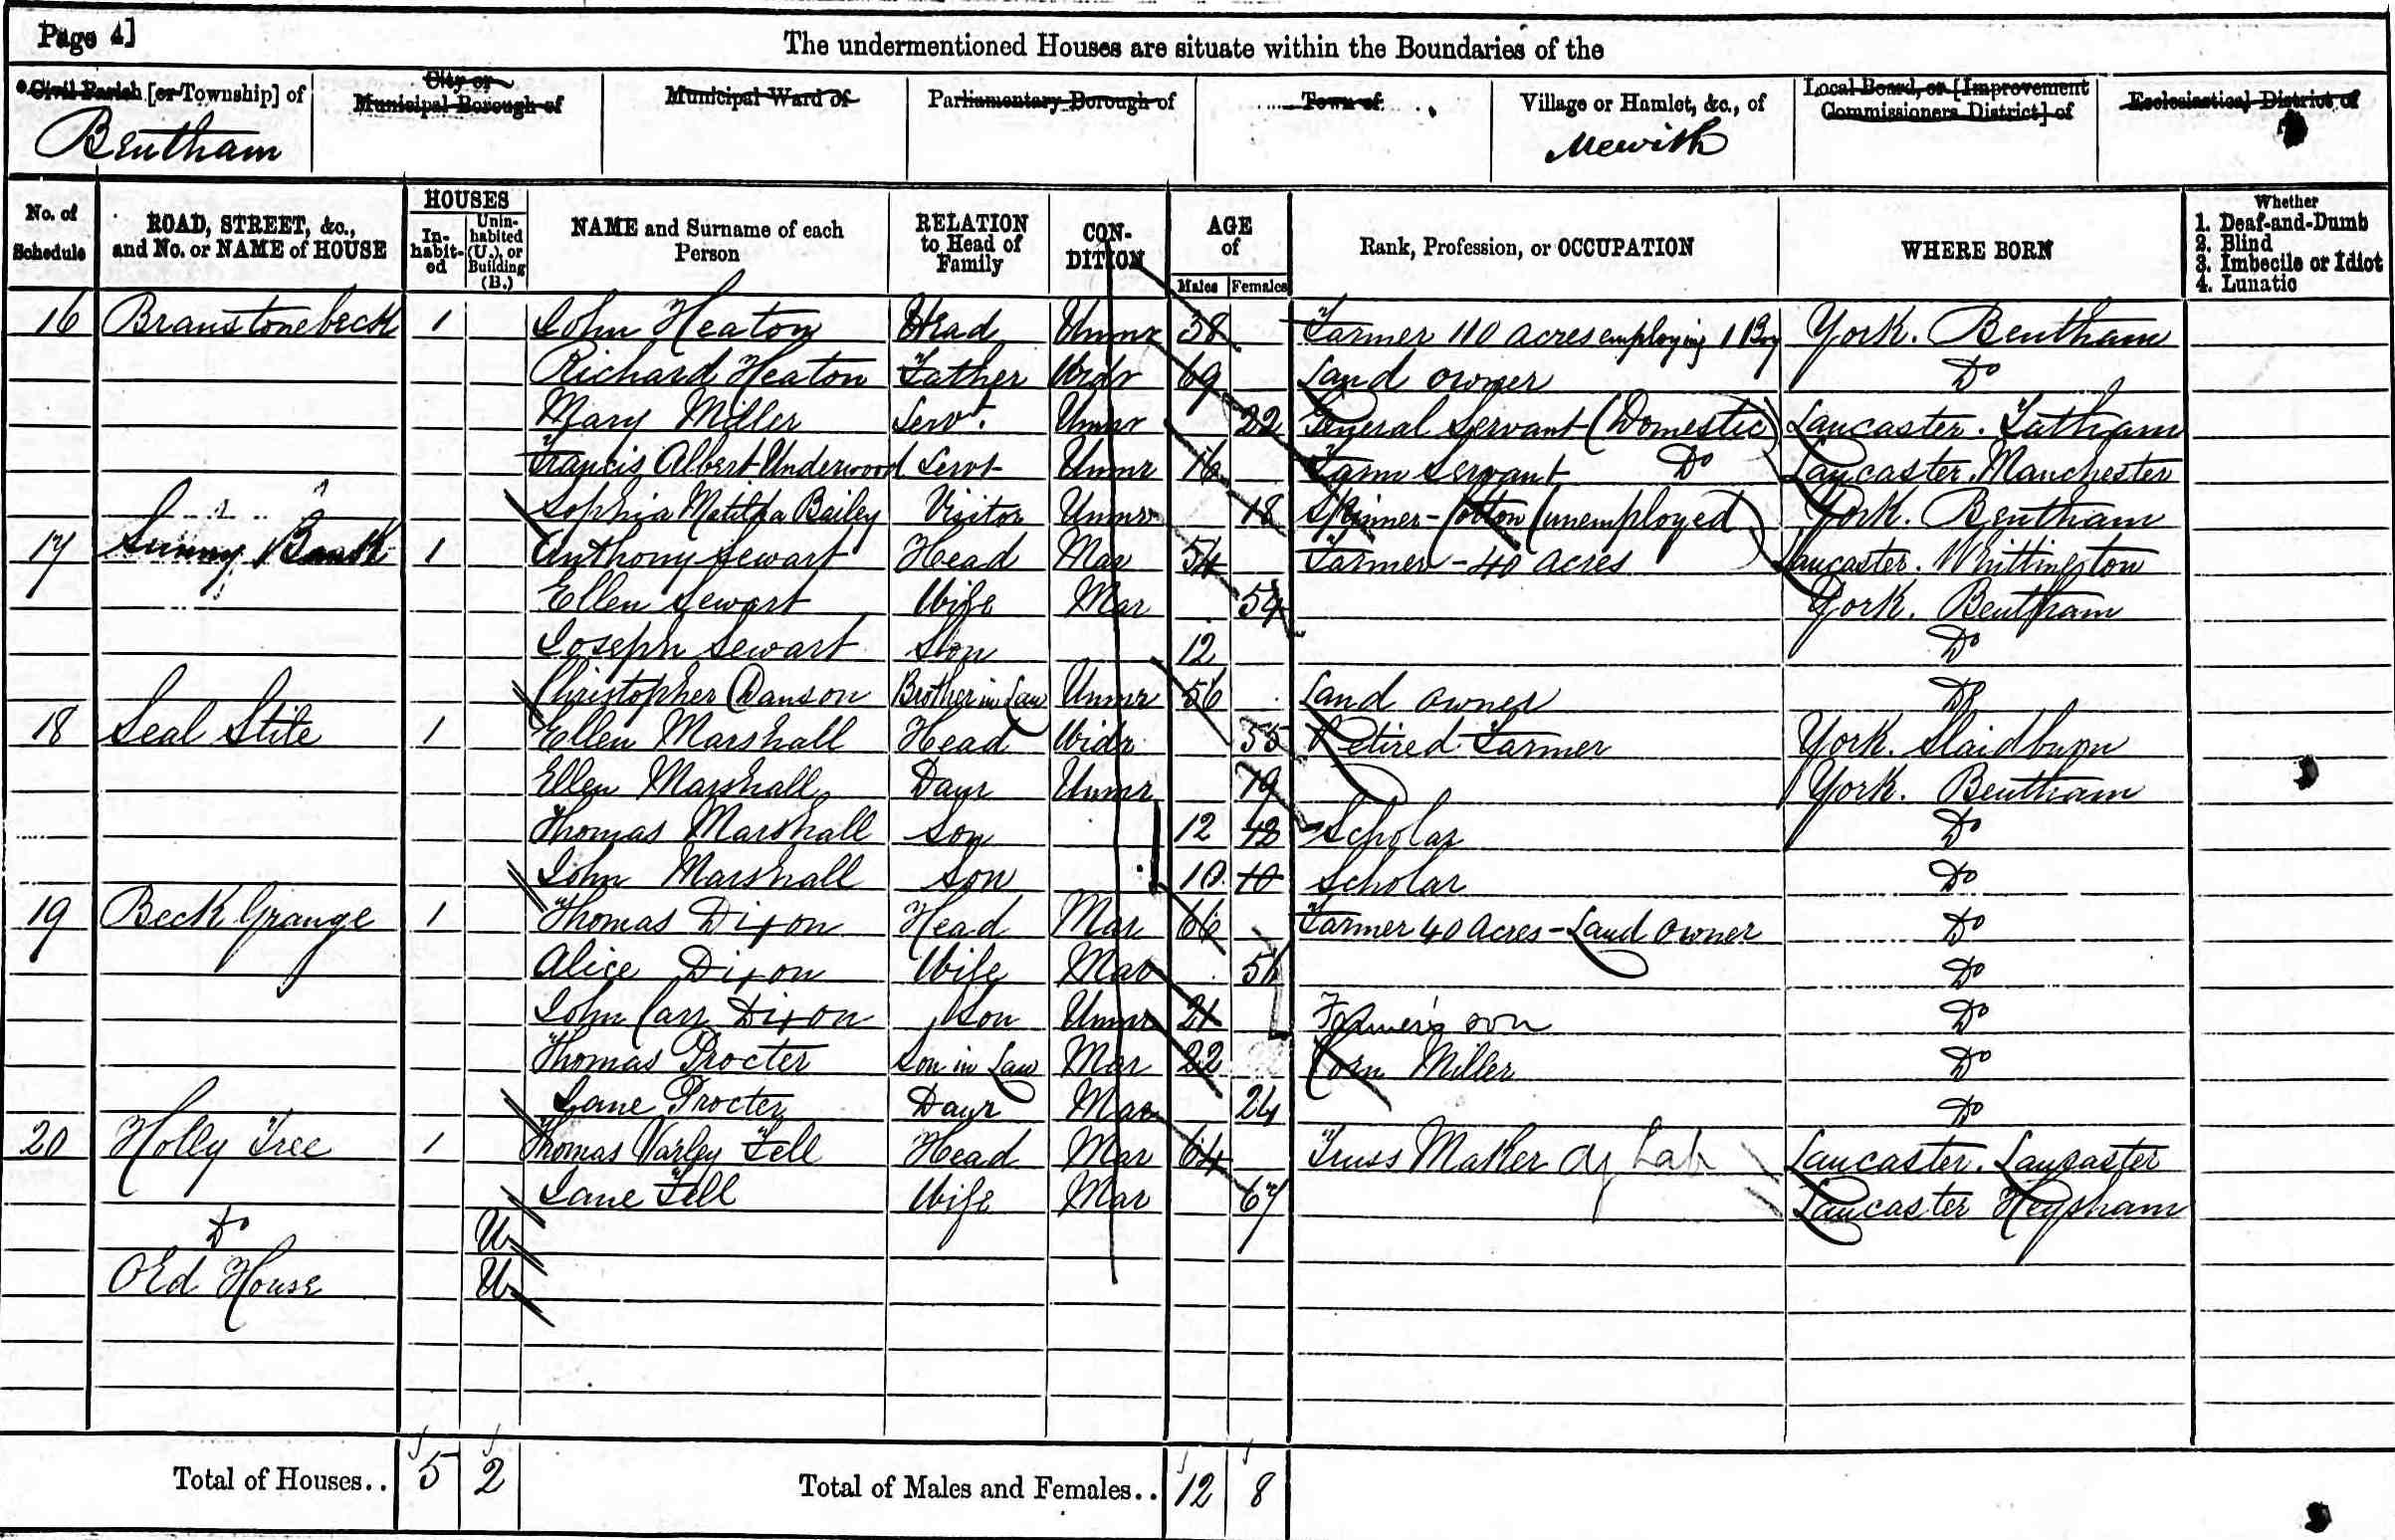 Page 4]
The undermentioned Houses are situate within the Boundaries of the
Civil Parish [or Township] of
City or Municipal Borough of
Municipal Ward of
Parliamentary Borough of
Town of
Village or Hamlet, &c., of
Local Board, or [Improvement Commissioners District] of
Ecclesiastical District of
Bentham
Mewith
No. of Schedule
ROAD, STREET, &c., and No. or NAME of HOUSE
HOUSES
In-habit-ed
Unin-habited (U.), or Building (B.)
NAME and Surname of each Person
RELATION to Head of Family
CON-DITION
AGE of
Males
Females
Rank, Profession, or OCCUPATION
WHERE BORN
Whether
1. Deaf-and-Dumb
2. Blind
3. Imbecile or Idiot
4. Lunatic
16 Branstonebeck 1 John Heaton Head Unmr 38 Farmer 110 acres employing 1 Boy York. Bentham
Richard Heaton Father Widr 69 Land owner Do
Mary Miller Servt. Unmr 22 General Servant (Domestic) Lancaster. Tatham
Francis Albert Underwood Servt Unmr 16 Farm Servant Do Lancaster. Manchester
Sophia Matilda Bailey Visitor Unmr 18 Spinner - Cotton (unemployed) York. Bentham
17 Sunny Bank 1 Anthony Sewart Head Mar 54 Farmer - 40 acres Lancaster. Whittington
Ellen Sewart Wife Mar 54 York. Bentham
Joseph Sewart Son 12 Do
Christopher Danson Brother in Law Unmr 56 Land owner Do
18 Seal Stile 1 Ellen Marshall Head Widr 55 Retired Farmer York. Slaidburn
Ellen Marshall Daur Unmr 19 York. Bentham
Thomas Marshall Son 12 12 Scholar Do
John Marshall Son 10 10 Scholar Do
19 Beck Grange 1 Thomas Dixon Head Mar 66 Farmer 40 Acres - Land owner Do
Alice Dixon Wife Mar Do
John Carr Dixon Son Unmr 21 Farmer's son Do
Thomas Procter Son in Law Mar 22 Corn Miller Do
Jane Procter Daur Mar 24 Do
20 Holly Tree 1 Thomas Varley Fell Head Mar 64 Truss Maker Ag Lab Lancaster. Lancaster
Jane Fell Wife Mar 67 Lancaster Heysham
Do U
Old House U
Total of Houses.. 5 2 Total of Males and Females.. 12 8